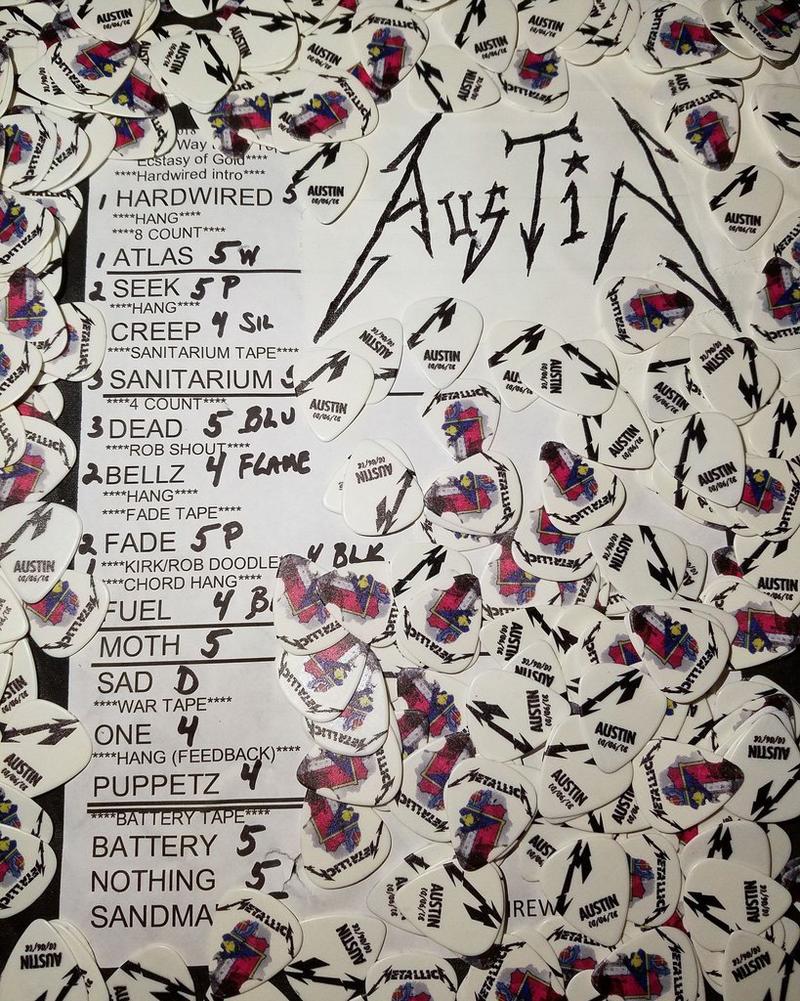 Way
Ecstasy of Gold****
****Hardwired intro****
1 HARDWIRED 5
****HANG****
****8 COUNT****
1 ATLAS 5 W
2 SEEK 5 P
****HANG****
CREEP 4 SIL
****SANITARIUM TAPE****
3 SANITARIUM
****4 COUNT****
3 DEAD 5 BLU
****ROB SHOUT****
2 BELLZ 4 FLAME
****HANG****
****FADE TAPE****
2 FADE 5 P
1 ****KIRK/ROB DOODLE 4 BLK
****CHORD HANG****
FUEL 4
MOTH 5
SAD D
****WAR TAPE****
ONE 4
****HANG (FEEDBACK)****
PUPPETZ 4
****BATTERY TAPE****
BATTERY 5
NOTHING 5
SANDMA
AUSTiN
METALLICA
AUSTIN